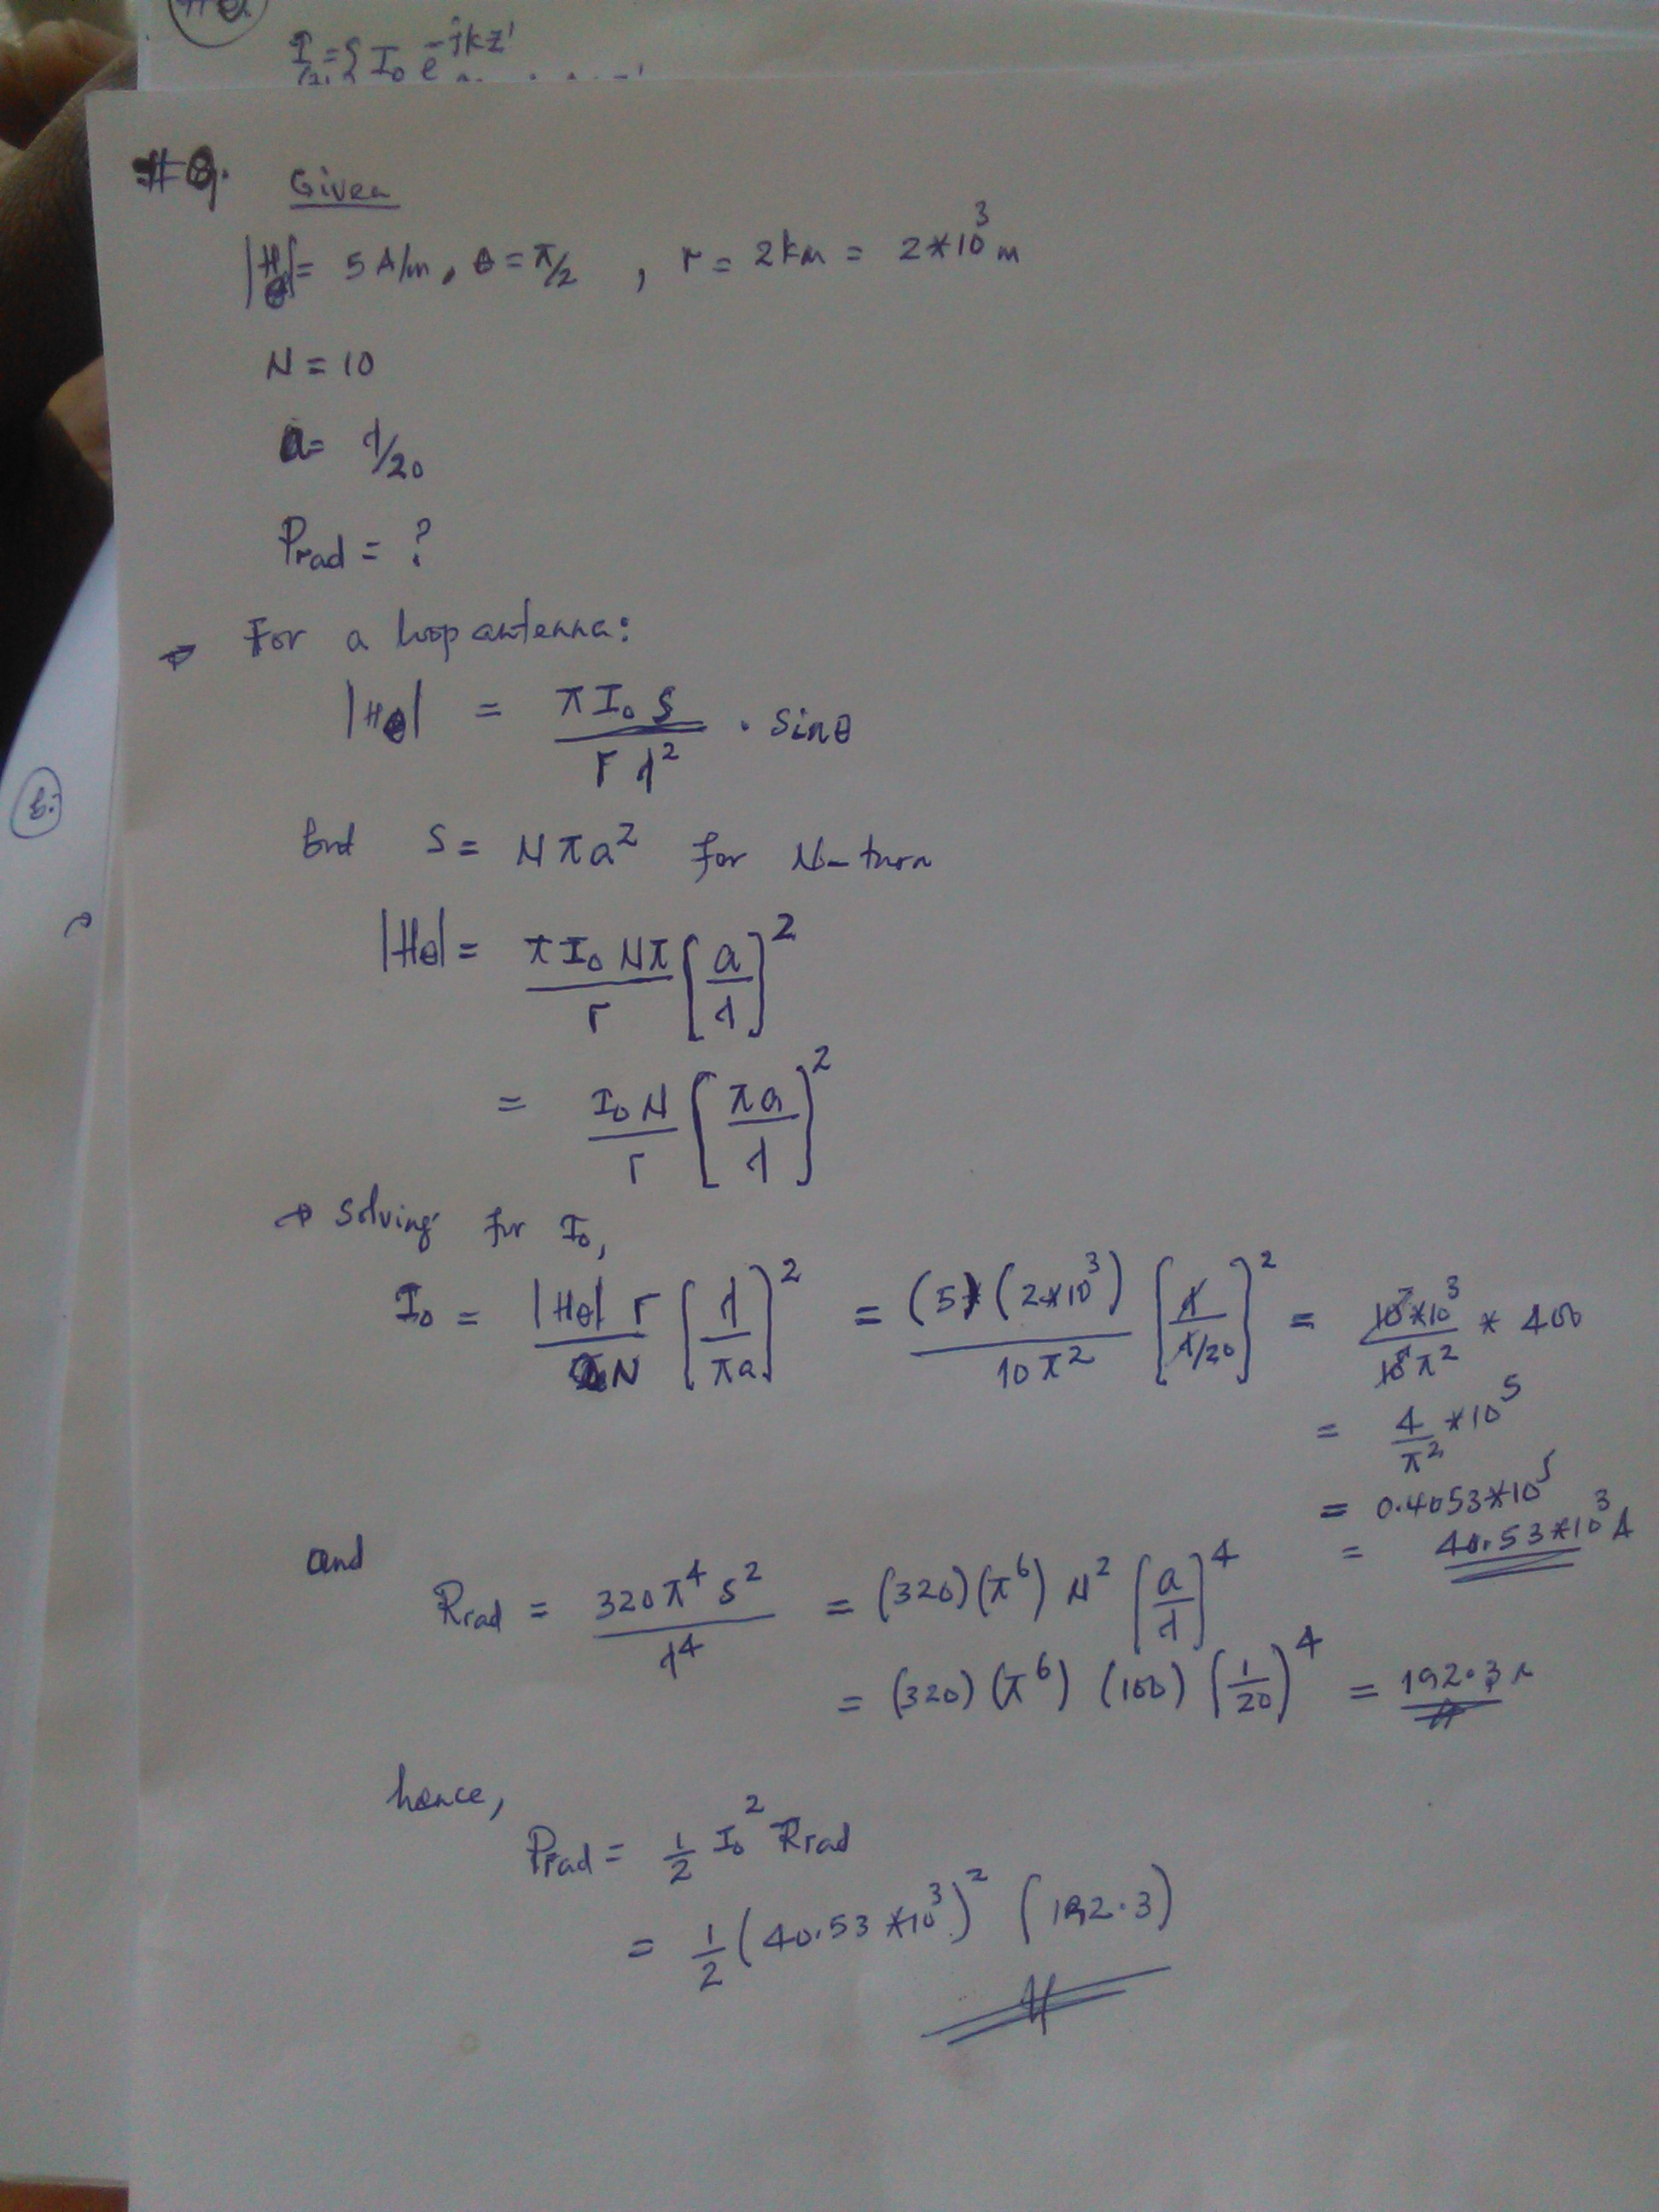 I = { I₀ e^-jkz'
#9. Given
|Hθ| = 5 A/m, θ = π/2 , r = 2km = 2*10³ m
N = 10
a = λ/20
Prad = ?
⇒ For a loop antenna:
|Hθ| = πI₀ S / r λ² · Sinθ
but S = Nπa² for N-turn
|Hθ| = π I₀ Nπ / r [a/λ]²
= I₀ N / r [πa/λ]²
⇒ Solving for I₀,
I₀ = |Hθ| r / N [λ/πa]² = (5)(2*10³) / 10π² [λ / λ/20]² = 10*10³ / 10π² * 400
= 4/π² *10⁵
= 0.4053*10⁵
= 40.53*10³ A
and
Rrad = 320π⁴ S² / λ⁴ = (320)(π⁶) N² [a/λ]⁴
= (320)(π⁶) (100) (1/20)⁴ = 192.3 Ω
hence,
Prad = 1/2 I₀² Rrad
= 1/2 (40.53*10³)² (192.3)
b.